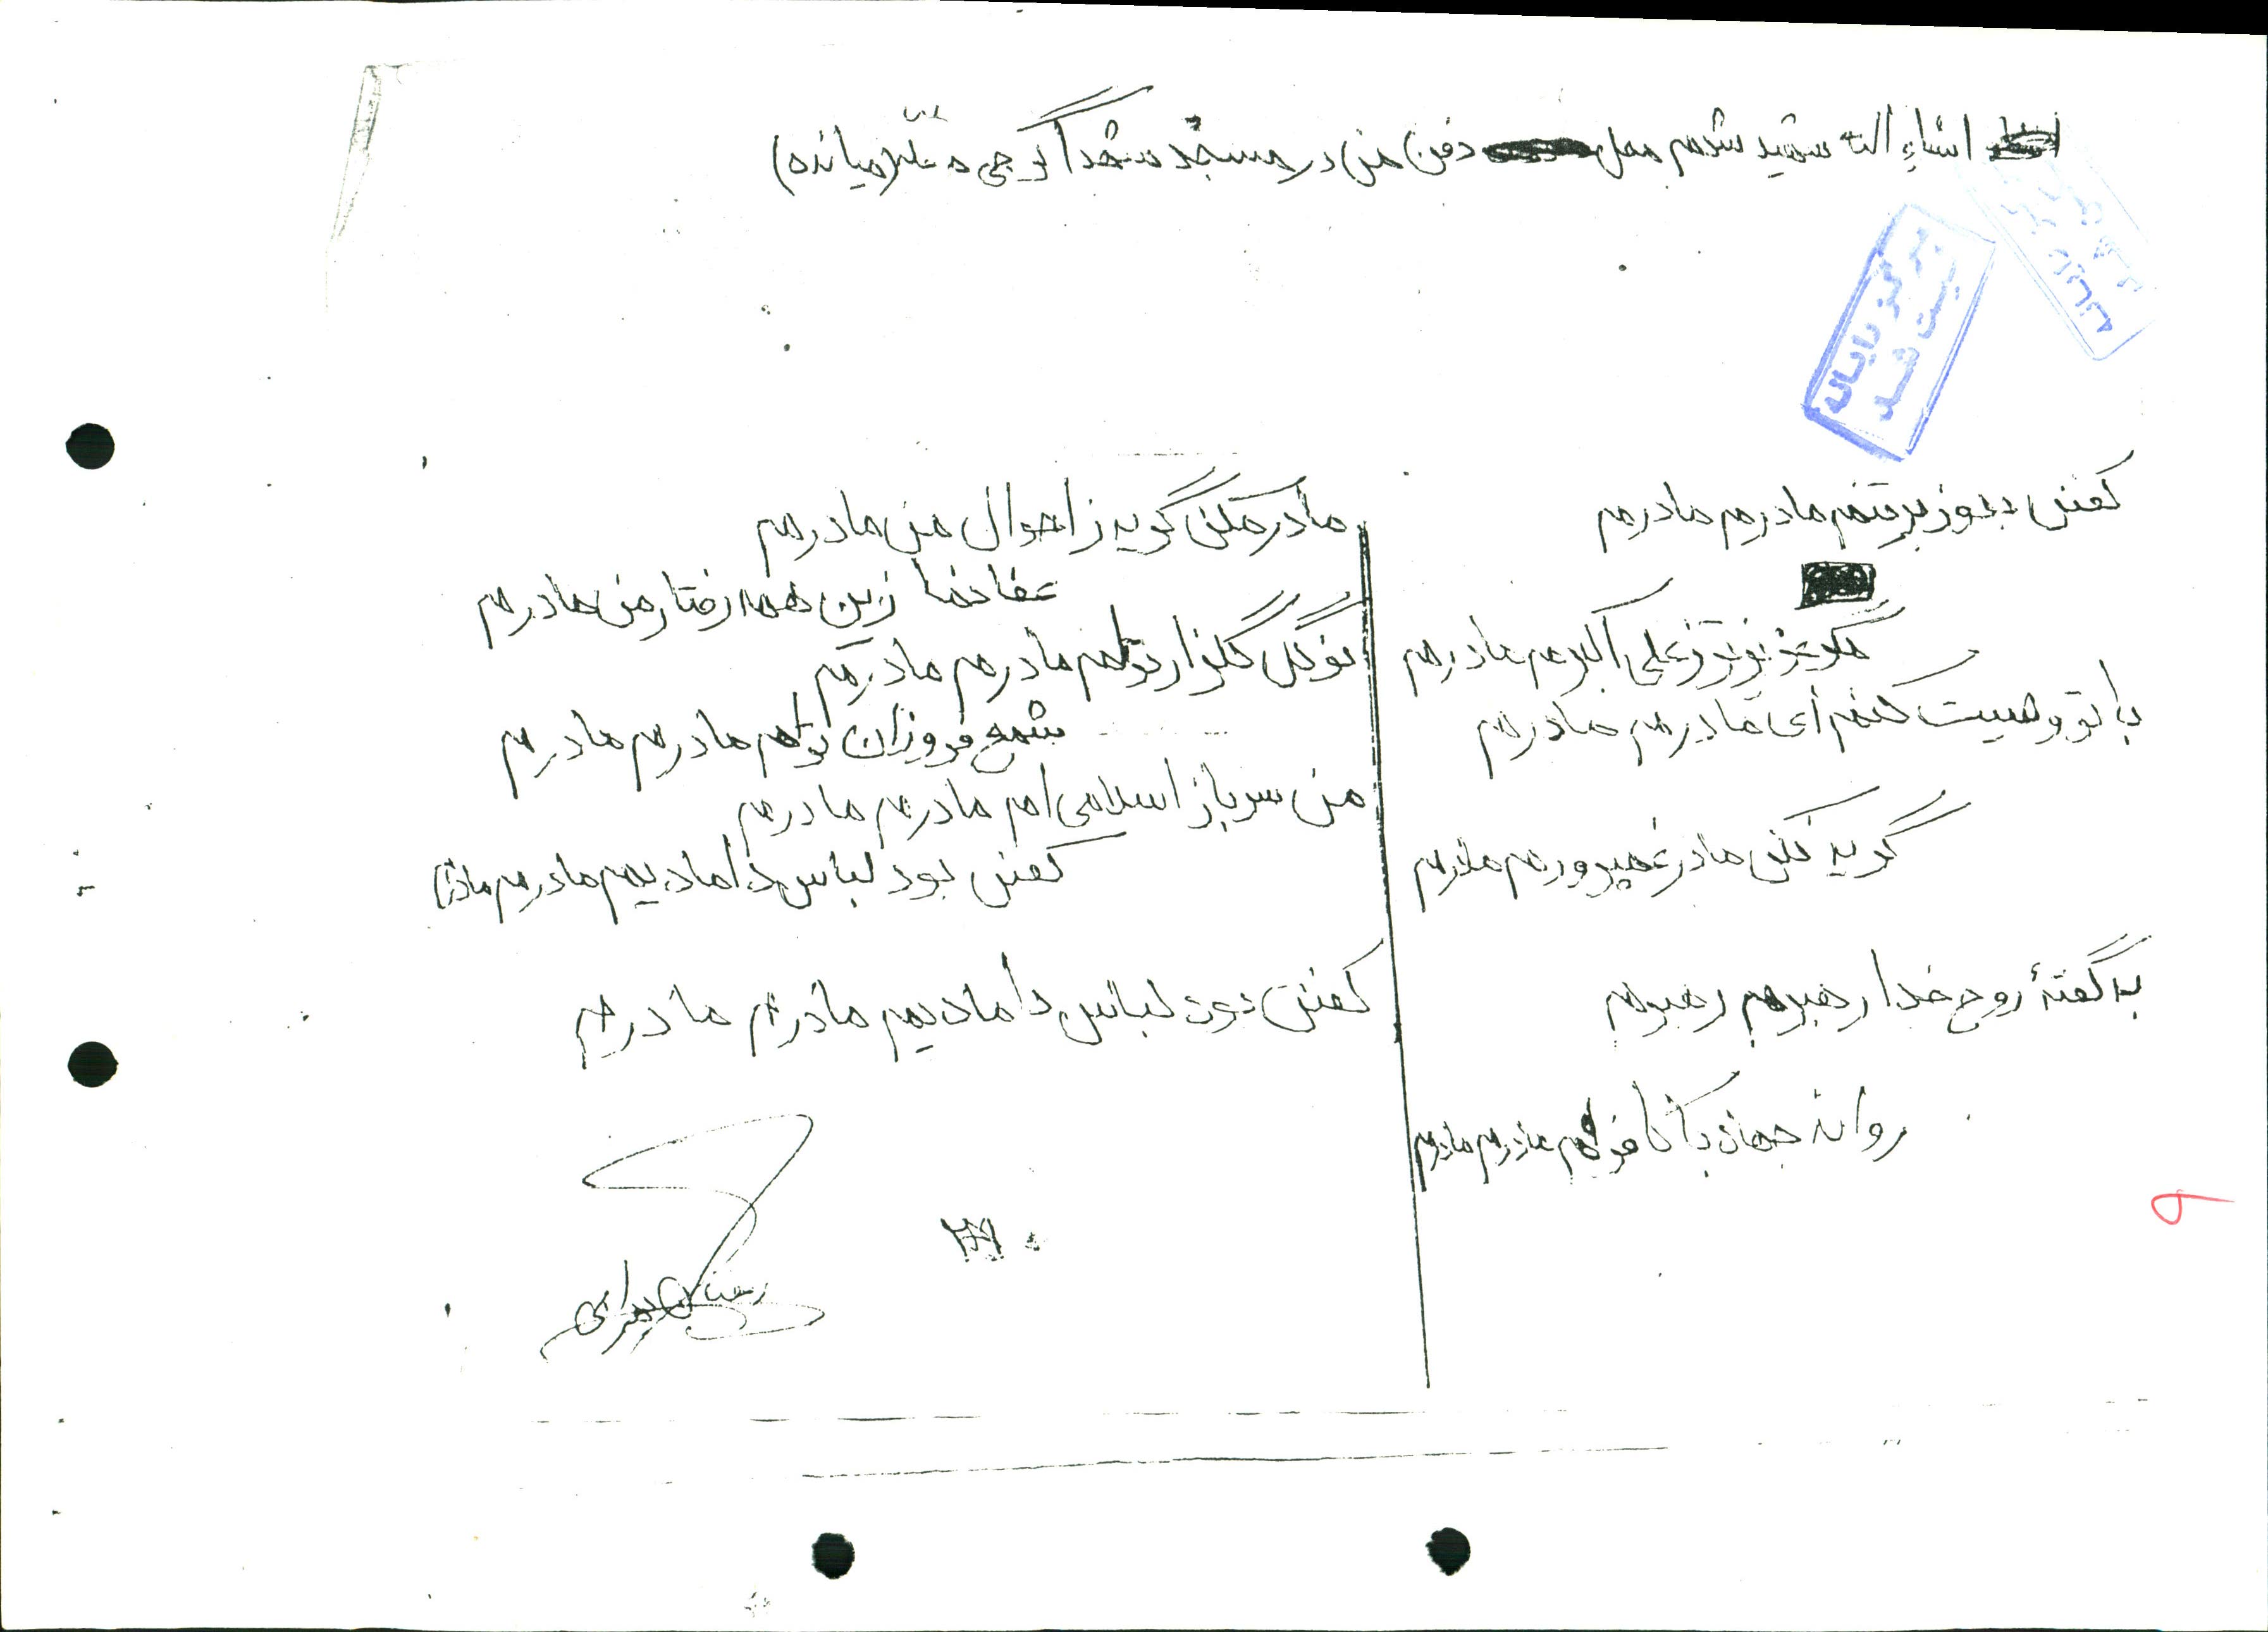 انشاء الله شهید شدم محل دفن من در مسجد شهدا کوچی محله (میانده)
به رایانه
ثبت شد
کفنی بدوز بر تنم مادرم مادرم
مگر عزیزتر ز علی اکبرم مادرم
با تو وصیت کنم ای مادرم مادرم
گریه نکن مادر غمپرورم مادرم
به گفتهٔ روح خدا رهبرم رهبرم
روانه جهان با کافرانم مادرم مادرم
مادر مکن گریه ز احوال من مادرم
عفا نما زین همه رفتار من مادرم
نوگل گلزار توام مادرم مادرم
شمع فروزان توام مادرم مادرم
من سرباز اسلامی ام مادرم مادرم
کفنی بود لباس دامادیم مادرم مادرم
کفنی بود لباس دامادیم مادرم مادرم